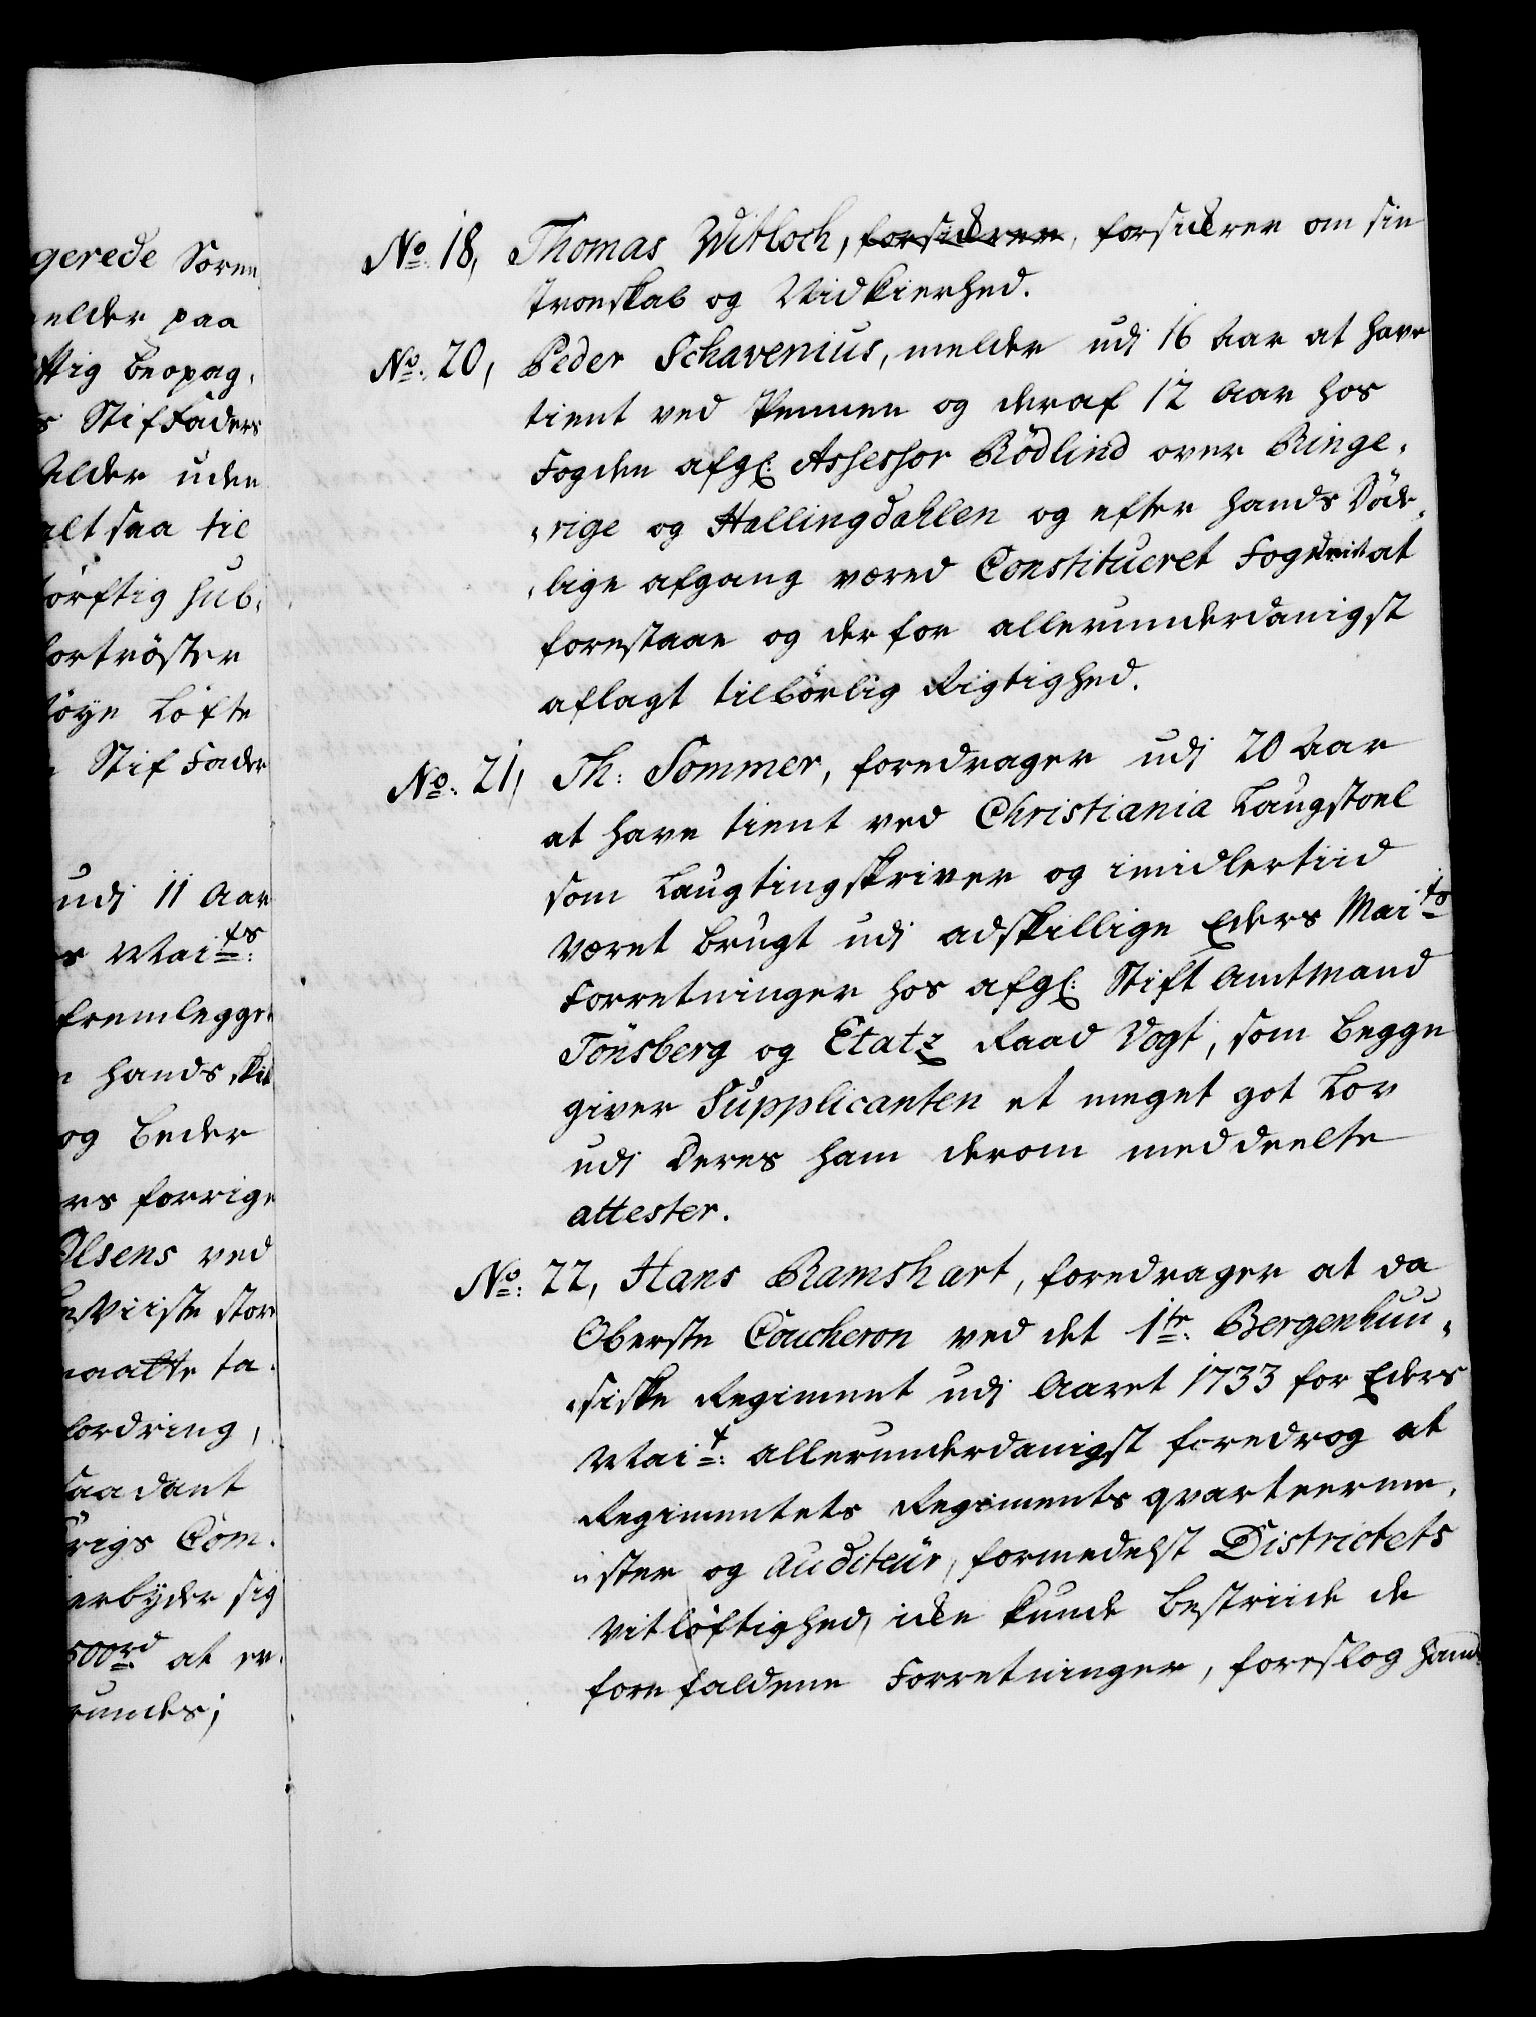 gerede Sören
elder paa
ftig beopag,
s Stif Faders
Alder uden
alt saa til
örftig hub,
fortröster
löye Löfte
Stif Fader
udj 11 Aar
s Mai:ts
fremlegge
hands skil
og beder
rs forrige
Olsens ved
beviiste stor
maatte ta,
fordring,
saadant
rigs Com,
erbyder sig
500rd at er,
rundes;
No. 18, Thomas Witloch, forsickrer, forsickrer om sin
troeskab og Vidkierhed.
No. 20, Peder Schavenius, melder udj 16 Aar at have
tient ved Pennen og deraf 12 Aar hos
Fogden afgl: Assessor Rödlind over Ringe,
,rige og Hallingdahlen og efter hands Döde,
,lige afgang været Constitueret Fogderiet at
forestaae og derfor allerunderdanigst
aflagt tilbörlig Rigtighed.
No. 21, Th: Sommer, foredrager udj 20 Aar
at have tient ved Christiania Laugstoel
som Laugtingskriver og imidlertiid
været brugt udj adskillige Eders Maits
Forretninger hos afgl: Stift Amtmand
Tönsberg og Etatz Raad Vogt, som begge
giver Supplicanten et meget got Lov
udj Deres ham derom meddeelte
attester.
No: 22, Hans Ramshart, foredrager at da
Oberste Coucheron ved det 1te Bergenhuu,
,siske Regiment udj Aaret 1733 for Eders
Mait: allerunderdanigst foredrog at
Regimentets Regiments qvarteerme,
,ster og Auditeur, formedelst Districtets
vitlöftighed, icke kunde bestriide de
forefaldene Forretninger, foreslog hand